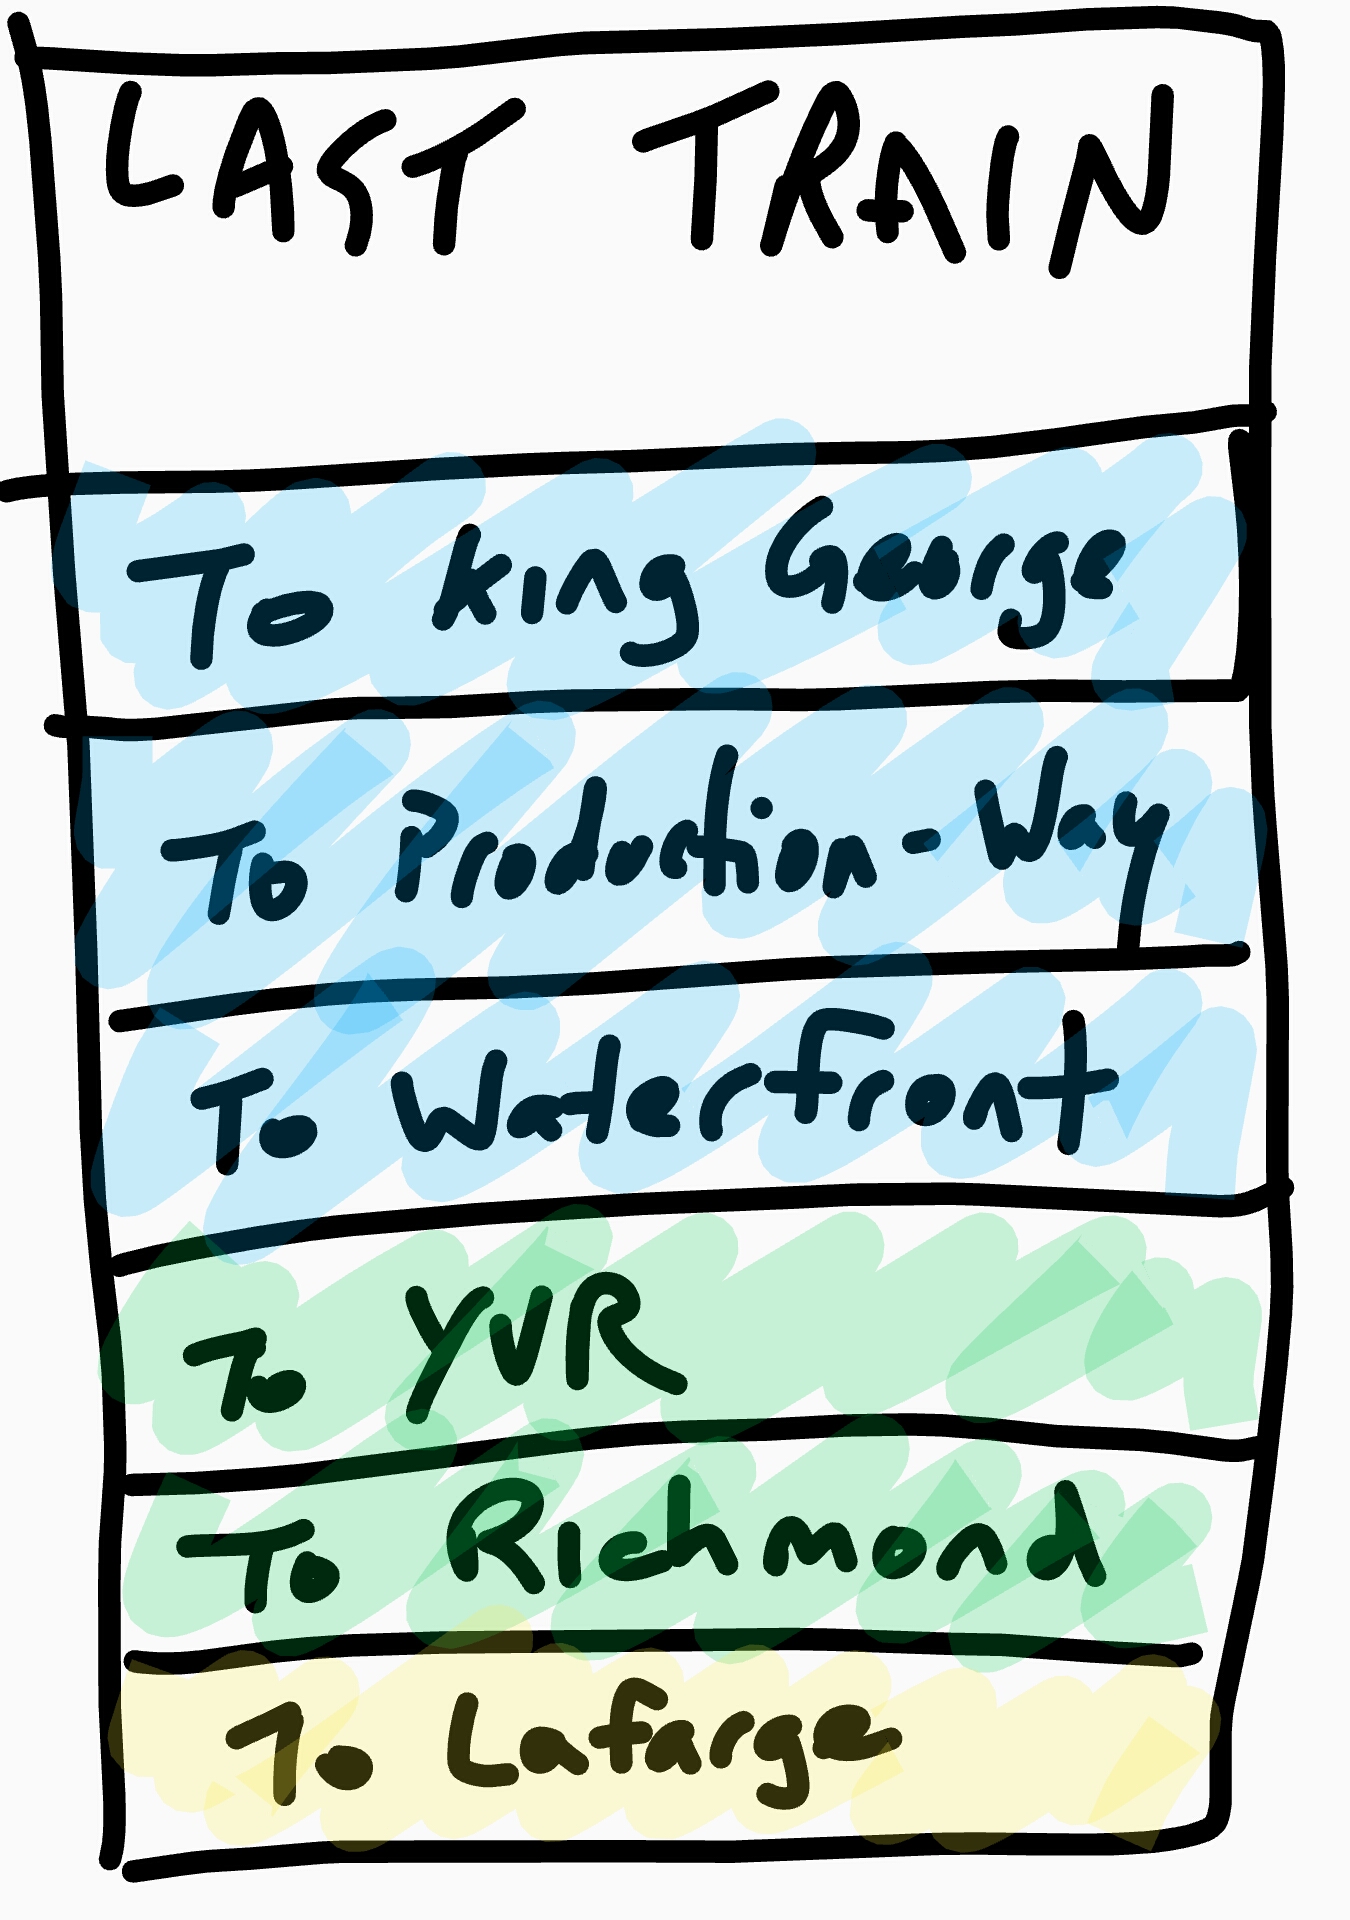 LAST TRAIN
To King George
To Production-Way
To Waterfront
To YVR
To Richmond
To Lafarge